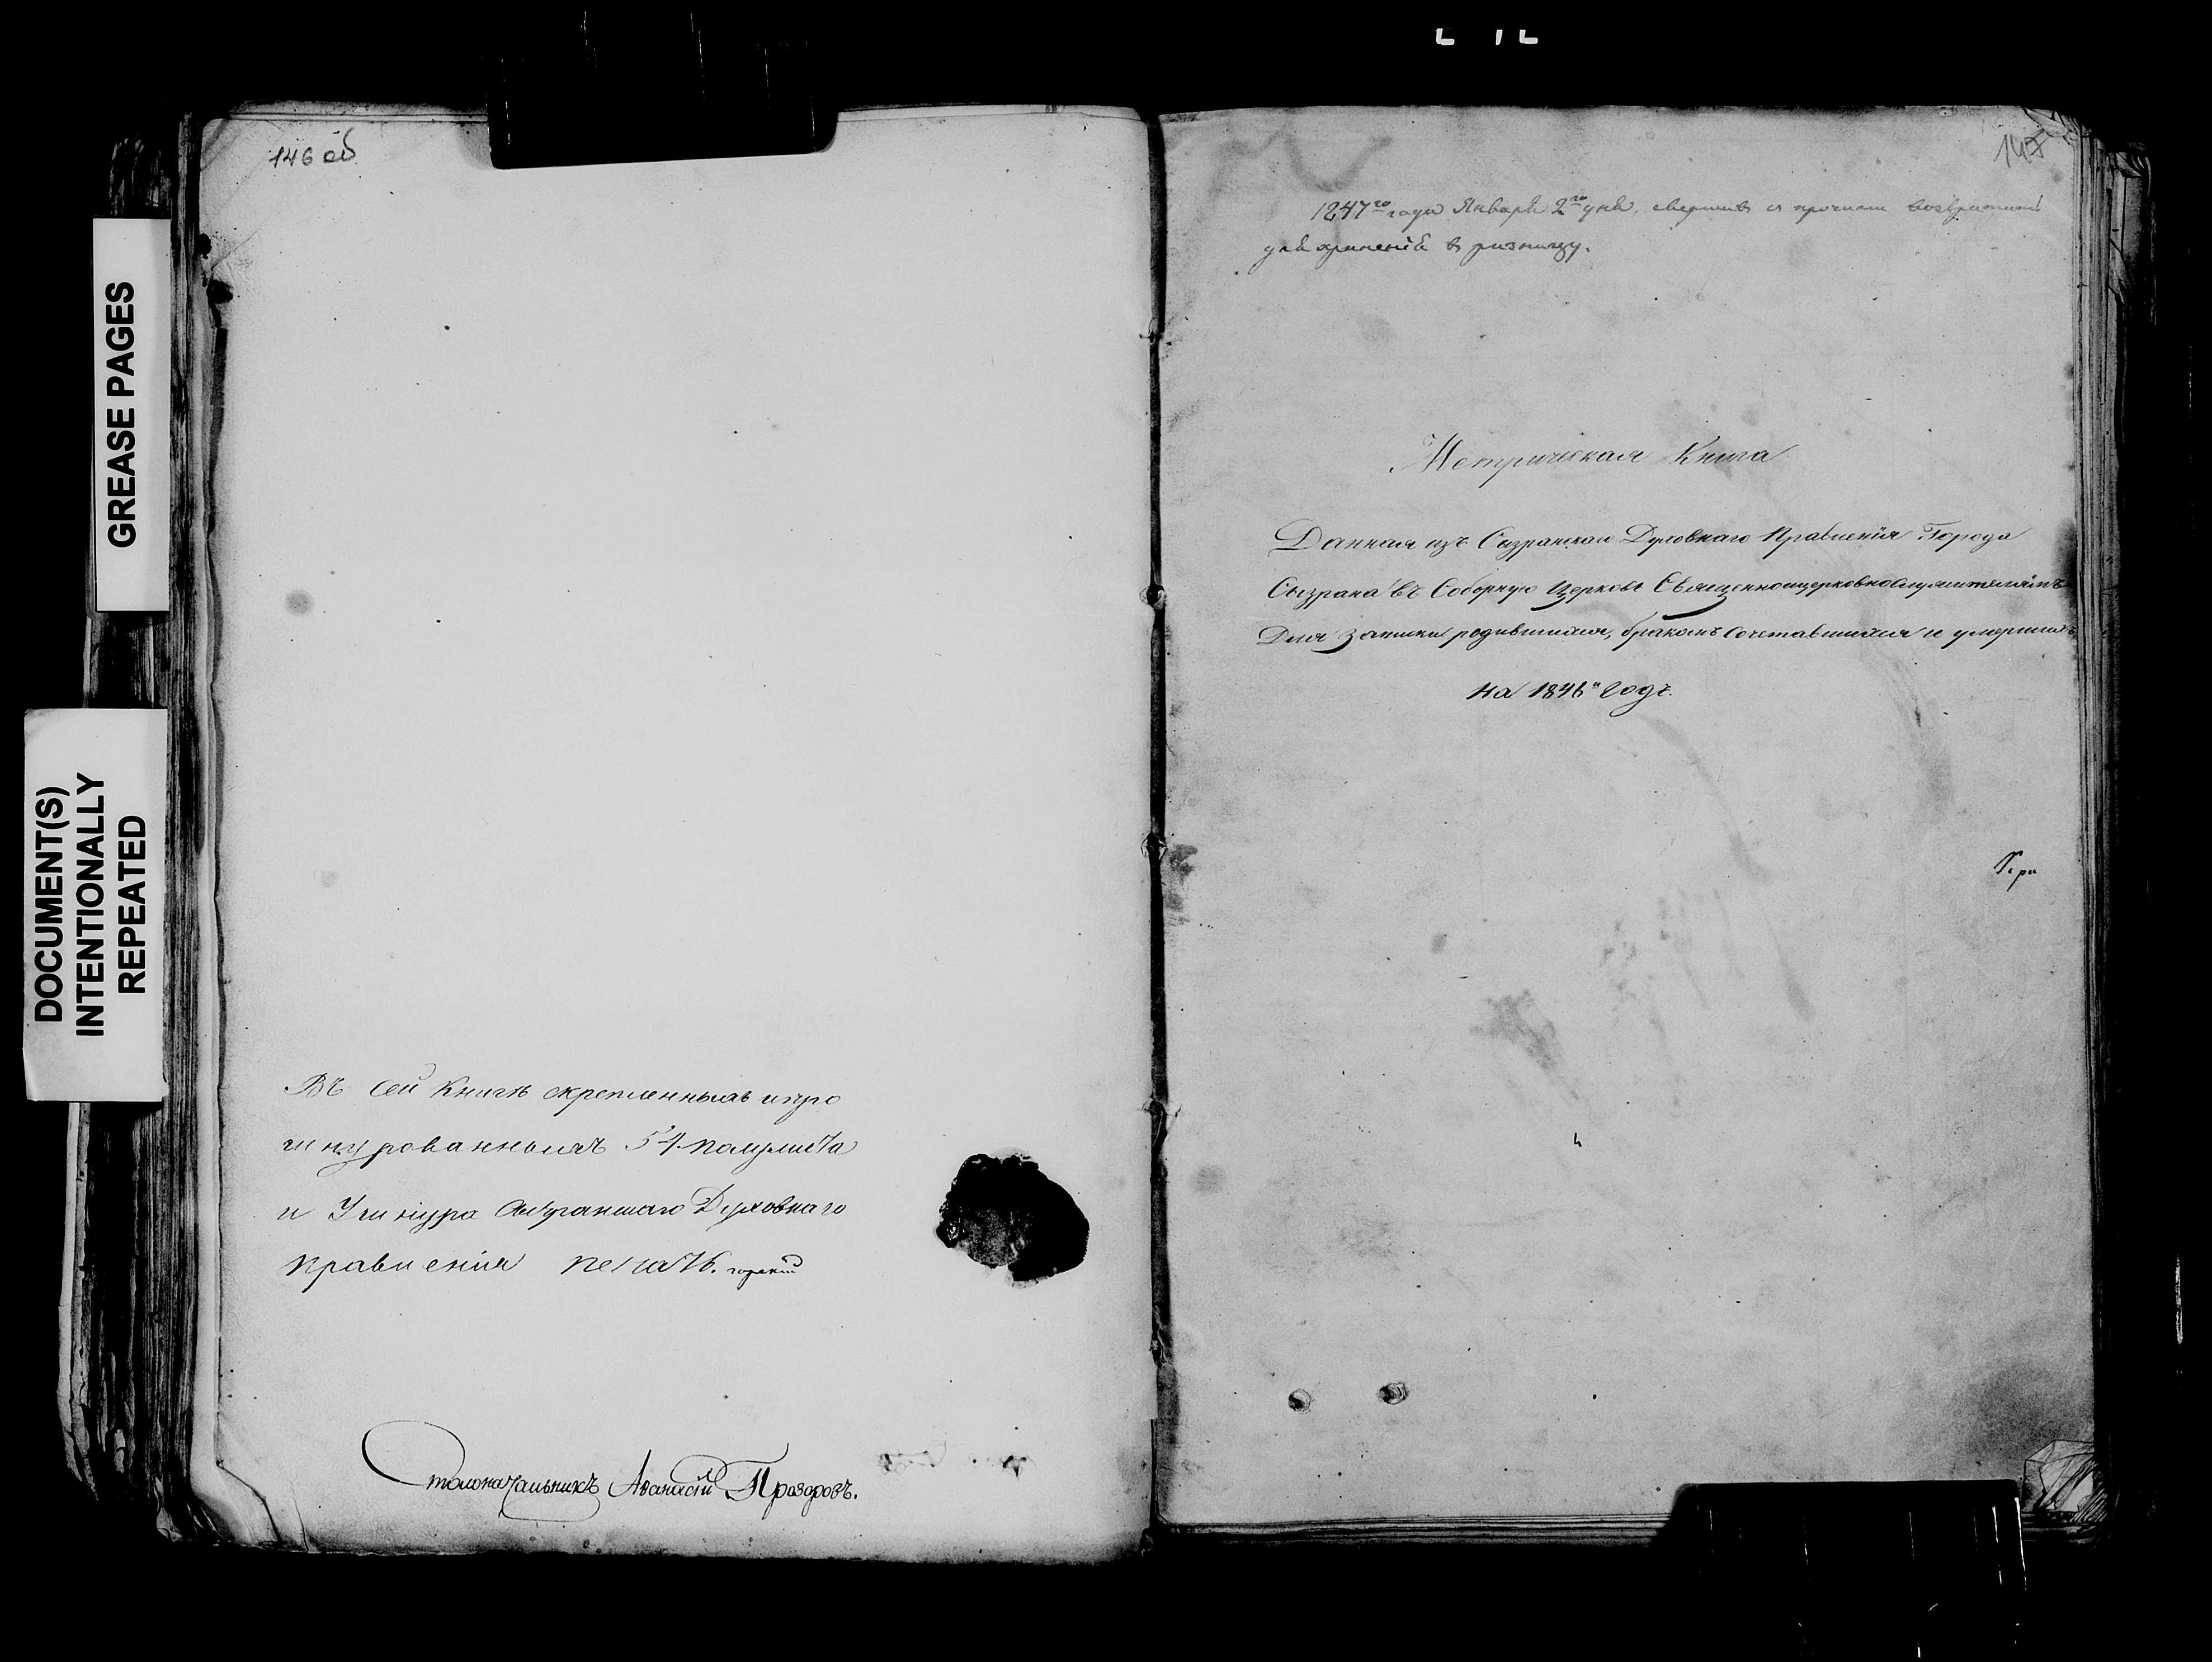 GREASE PAGES
DOCUMENT(S)
INTENTIONALLY
REPEATED
146 об
Въ сей Книгѣ скрепленныхъ и про
шнурованныхъ 54 полулиста
и У шнура Сызранскаго Духовнаго
правленія печать.
Столоначальникъ Аѳанасій Прозоровъ.
147
1847го года Января 2го дня, сверивъ съ прочими возвратить
для храненія въ ризницу.
Метрическая Книга
Данная изъ Сызранскаго Духовнаго Правленія Города
Сызрана въ Соборную Церковь Священноицерковнослужителямъ
Для записки родившихся, бракомъ сочетавшихся и умершихъ
на 1846й годъ.